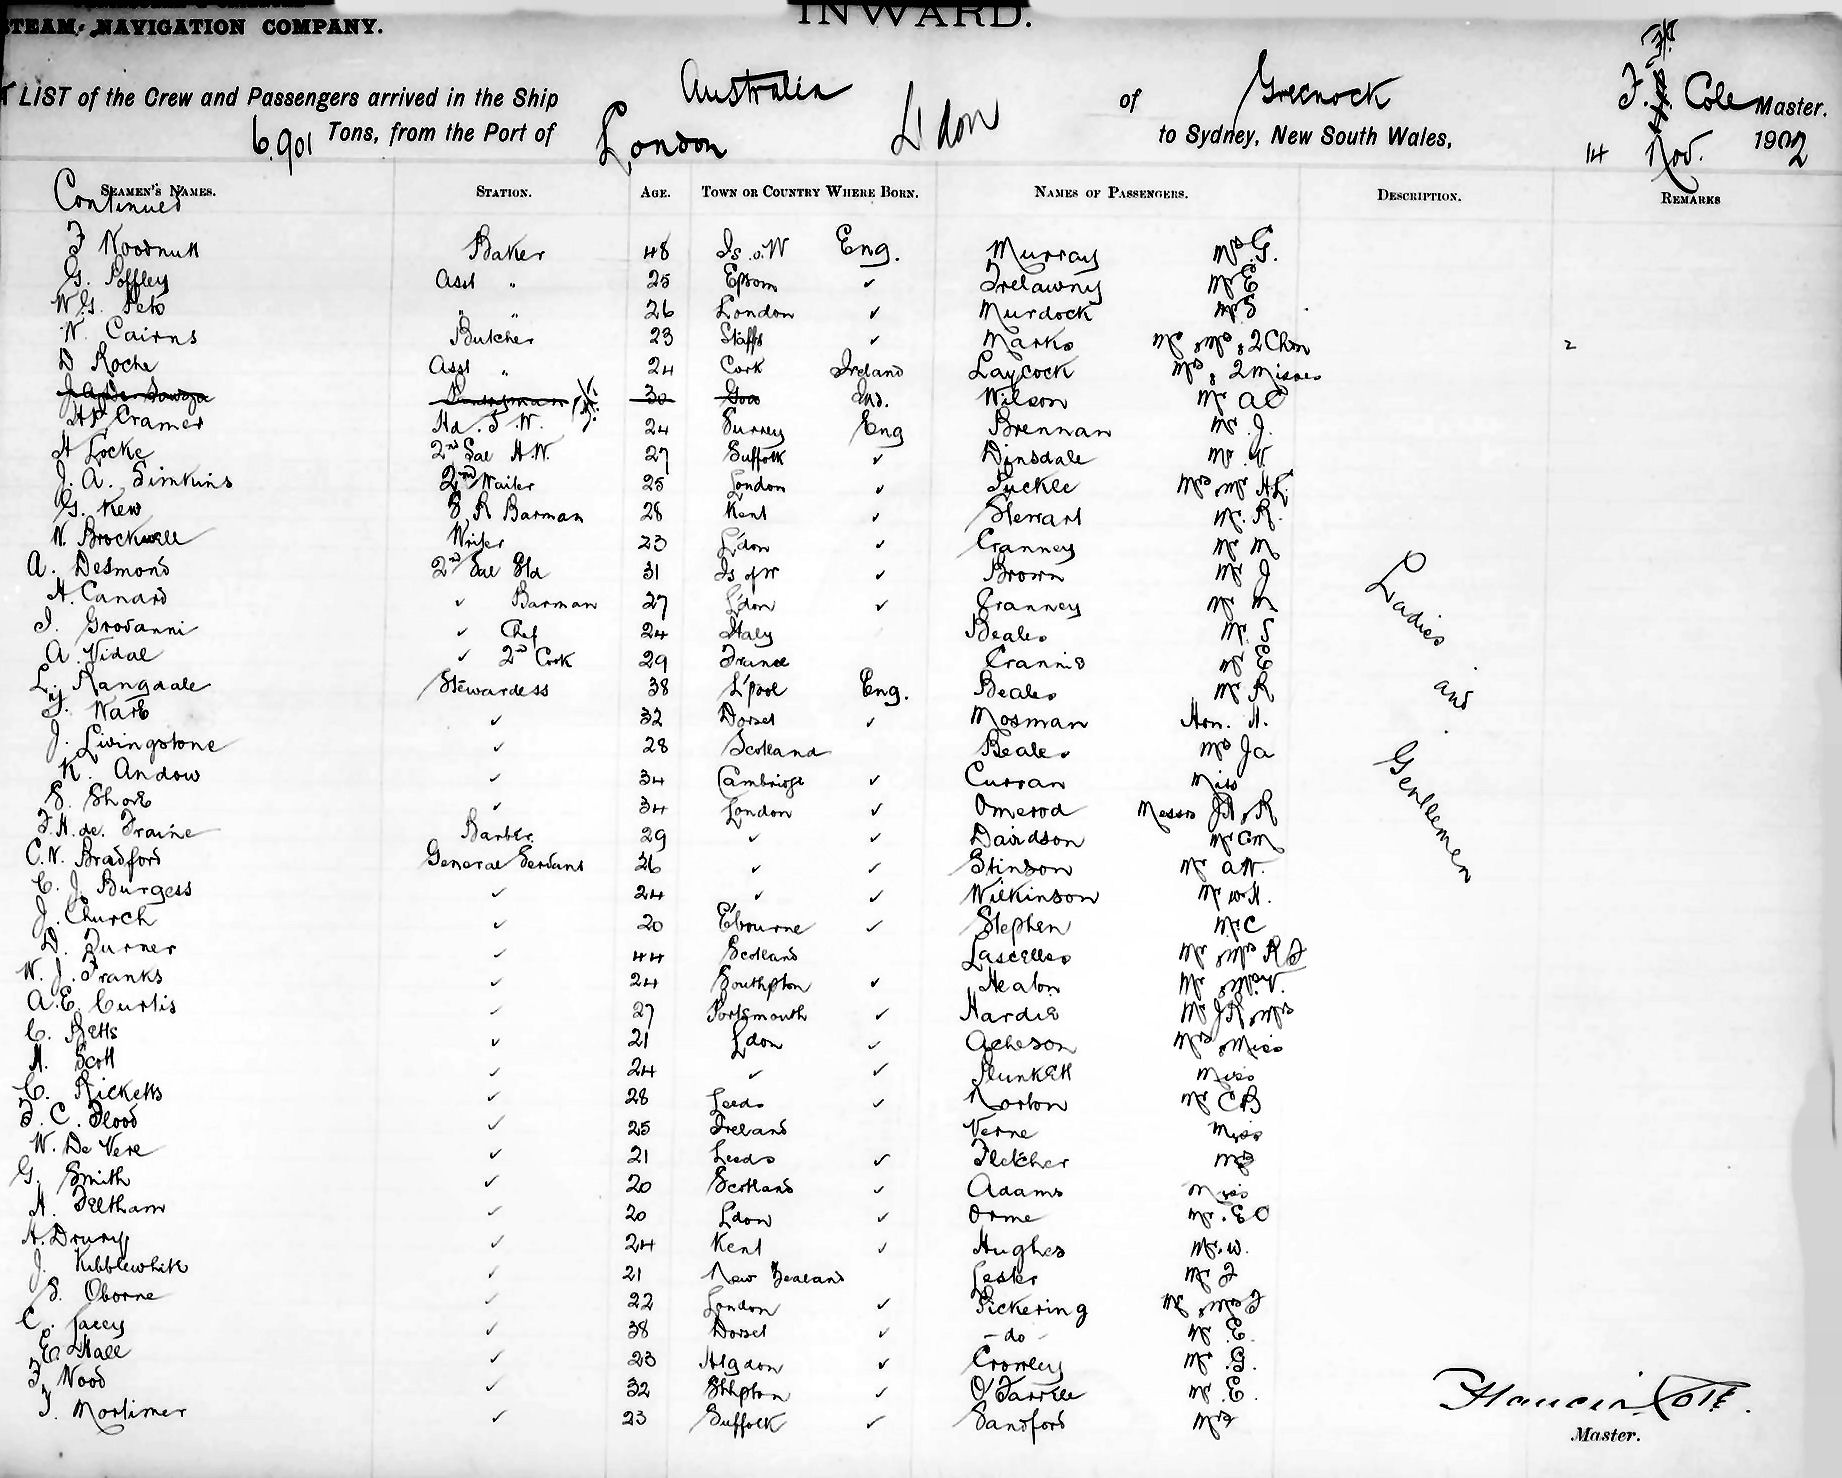 STEAM NAVIGATION COMPANY.
INWARD.
LIST of the Crew and Passengers arrived in the Ship Australia of Greenock F. Cole Master.
6,901 Tons, from the Port of London L'don to Sydney, New South Wales, 14 Nov. 1902
SEAMEN'S NAMES. STATION. AGE. TOWN OR COUNTRY WHERE BORN. NAMES OF PASSENGERS. DESCRIPTION. REMARKS
Continued
F Woodnutt Baker 48 Is. o. W Eng. Murray Mrs G.
G. Poffley Asst " 25 Epsom ✓ Trelawny
W. G. Peto " " 26 London ✓ Murdock Mr S
W. Cairns Butcher 23 Staffs ✓ Marks Mr & Mrs & 2 Chn 2
D Roche Asst " 24 Cork Ireland Laycock Mrs & 2 Misses
30 Goa Ind. Wilson Mr A C
Cramer Hd. S. W. 24 Surrey Eng Brennan Mr J.
H Locke 2nd Sal H.W. 27 Suffolk ✓ Dinsdale Mr W.
J. A. Simkins 2nd Waiter 25 London ✓ Suckle
G. Kew S. R Barman 28 Kent ✓ Stewart Mr. R.
W. Brockwell Writer 23 L'don ✓ Cranney Mr M
A. Desmond 2nd Sal Std 31 Is of W ✓ Brown Mr J
H. Canard ✓ Barman 27 L'don ✓ Cranney Mr M
Chef 24 Italy Beales Mr. S
A. Vidal ✓ 2nd Cook 29 France
L. Rangdale Stewardess 38 L'pool Eng. Beales Mr R
Warb ✓ 32 Dorset ✓ Mosman Hon. A.
J. Livingstone ✓ 28 Scotland Beales Mrs Ja
K. Andow ✓ 34 Cambridge ✓ Curran Miss
S. Shorb ✓ 34 London ✓ Omerod Messrs
F. H. de. Fraine Barber 29 ✓ ✓ Davidson Mr C M
C. W. Bradford General Servant 26 ✓ ✓ Stinson Mr A W.
C. J. Burgess ✓ 24 ✓ ✓ Wilkinson Mr W H.
J. Church ✓ 20 E'bourne ✓ Stephen Mr C
D. Turner ✓ 44 Scotland Lascelles Mr & Mrs R J
W. J. Franks ✓ 24 Southpton ✓ Heaton
A. E. Curtis ✓ 27 Portsmouth ✓ Hardie Mr J R & Mrs
C. Betts ✓ 21 L'don ✓ Acheson Mrs & Miss
H. Scott ✓ 24 ✓ ✓ Plunkett Miss
C. Ricketts ✓ 28 Leeds ✓ Norton Mr C B
F. C. Flood ✓ 25 Ireland Verne Miss
W. De Vere ✓ 21 Leeds ✓ Fletcher
G. Smith ✓ 20 Scotland ✓ Adams Miss
H. Feltham 20 Ldon ✓ Orme Mr. E O
H. Drury ✓ 24 Kent ✓ Hughes Mr. W.
J. Kibblewhite ✓ 21 New Zealand Lester Mr F
S. Oborne ✓ 22 London ✓ Pickering
C. Jacey ✓ 38 Dorset ✓ - do - Mr E.
E. Hall ✓ 23 ✓ Crowley Mr G.
F. Wood ✓ 32 Sthpton ✓ O'Farrell Mr E.
F. Mortimer ✓ 23 Suffolk ✓ Sandford
Ladies and Gentlemen
Francis Cole.
Master.